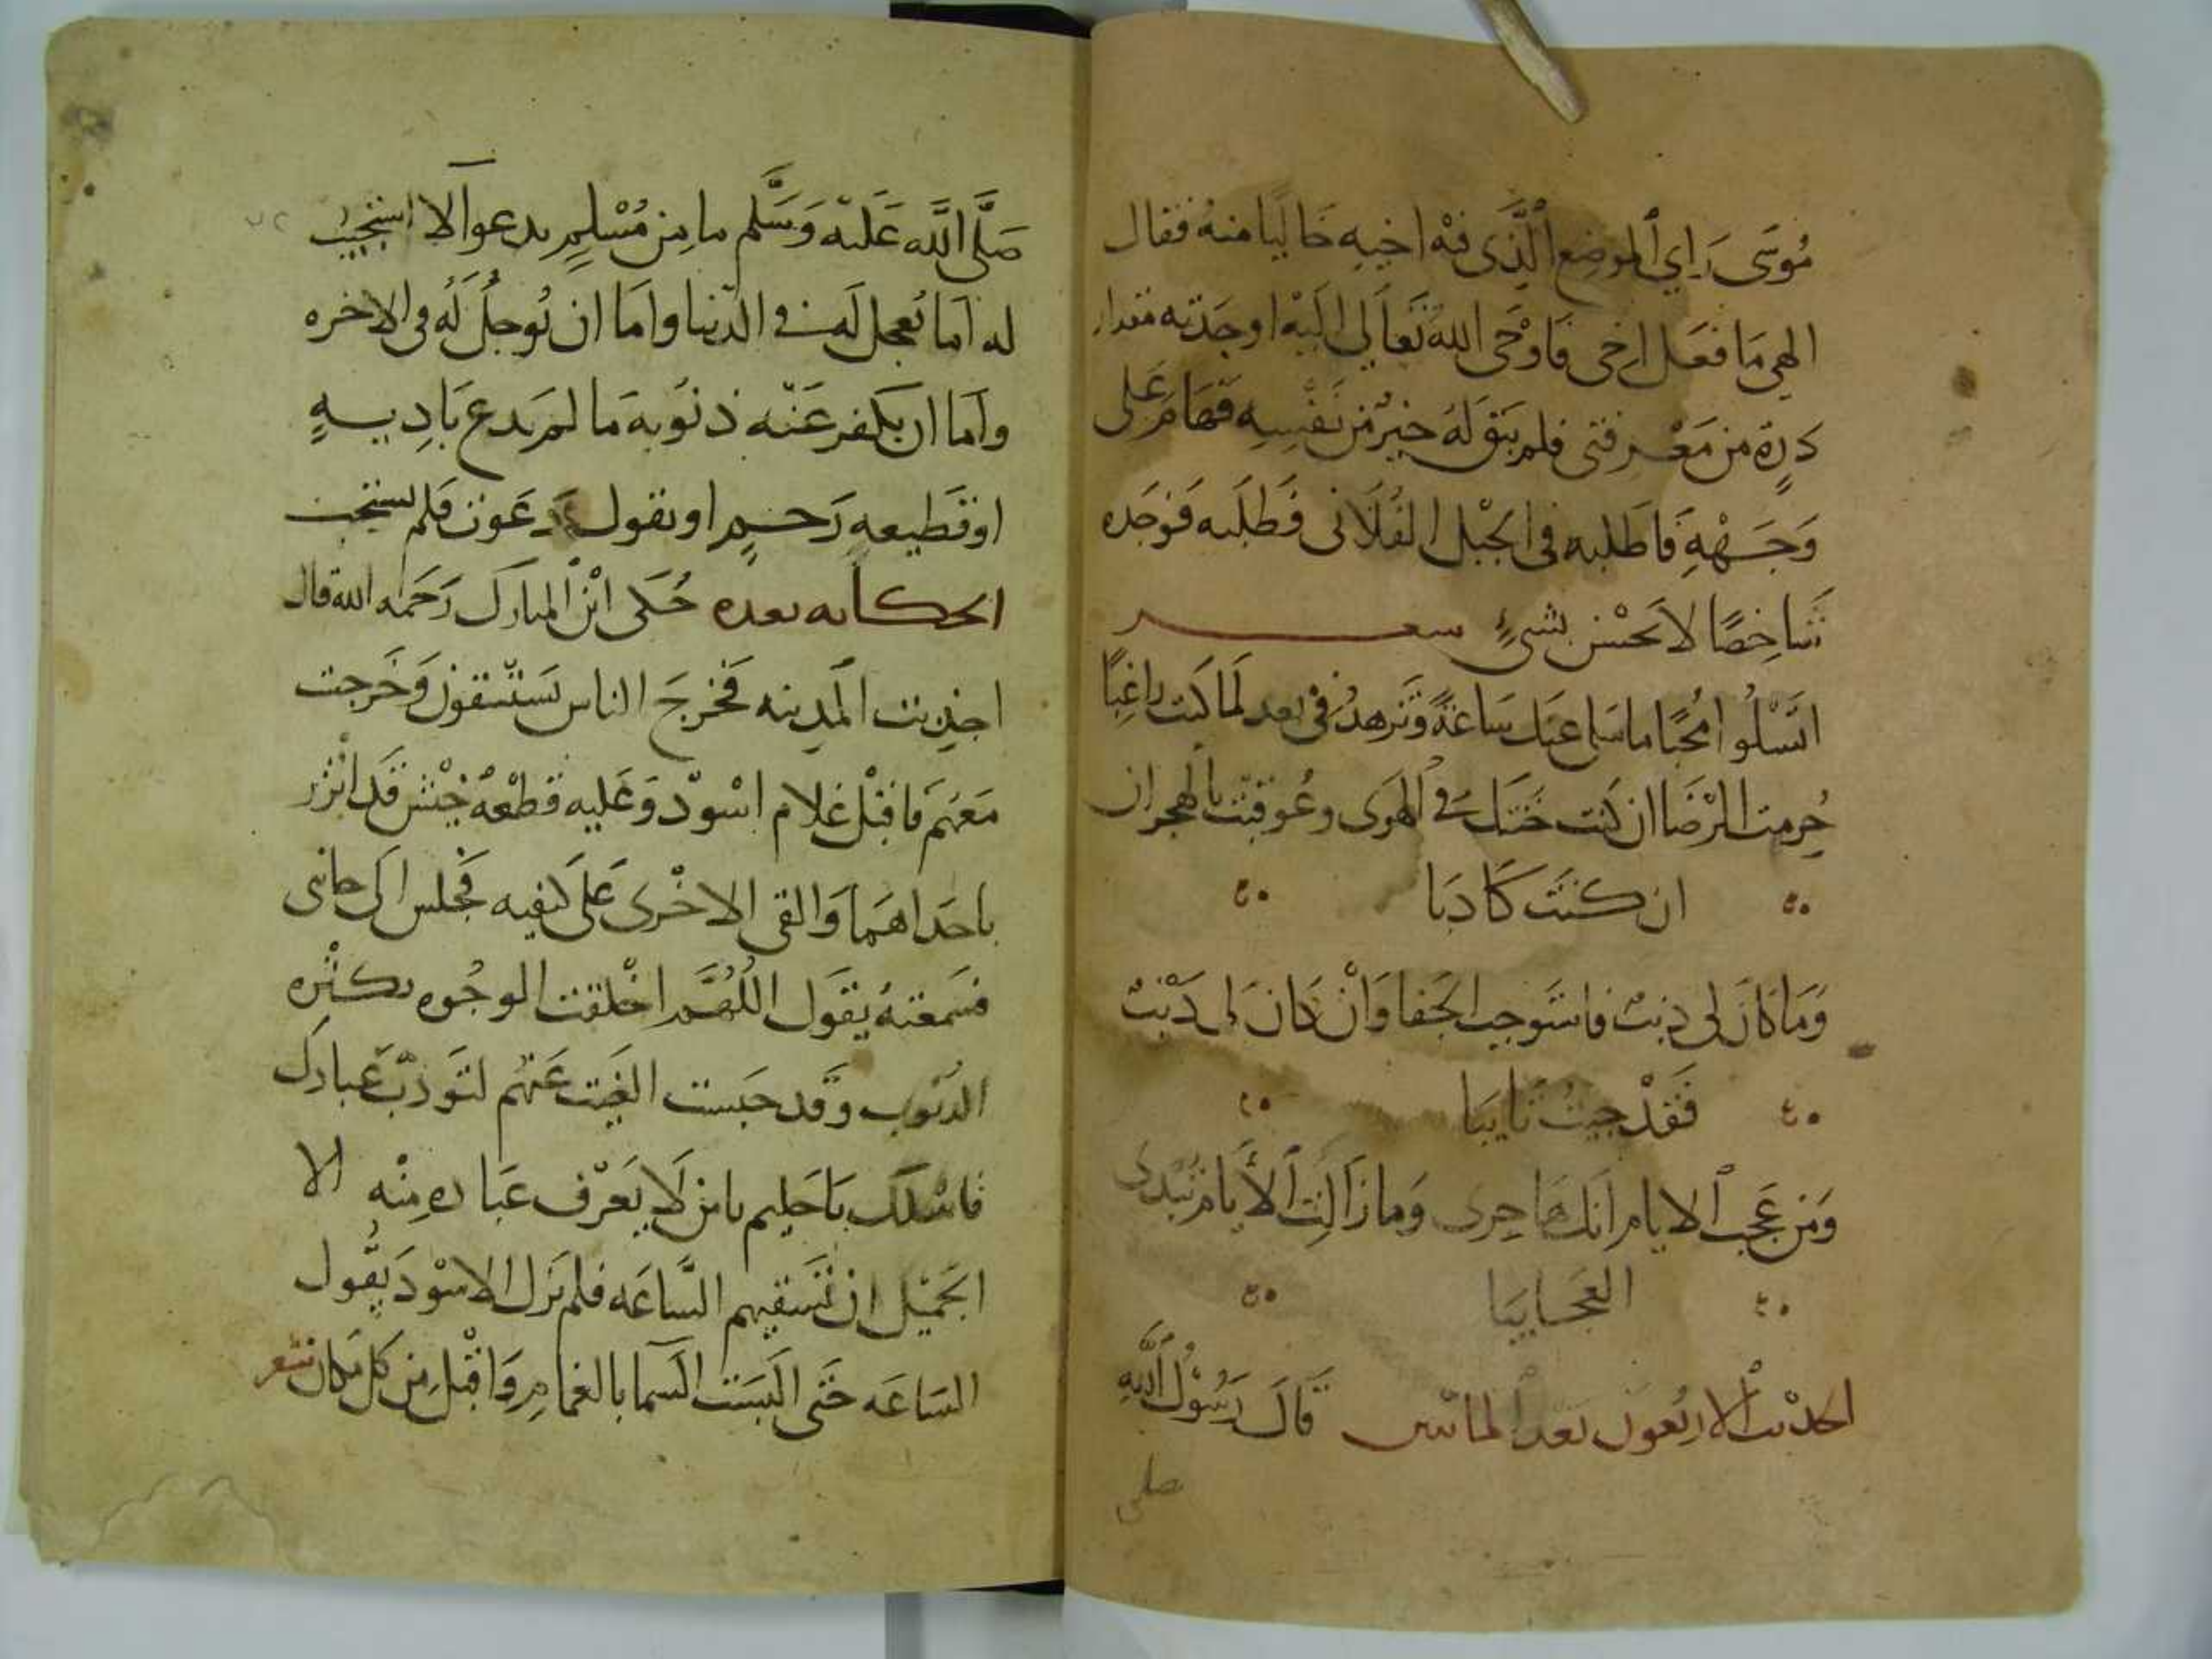 مُوسَى رَاي الموضع الَّذى فيه اخيه خاليًا منهُ فقال
الهي مَا فعَل اخى فَاوْحى اللهُ تعَالى اليْه اوجدته مقدار
ذرة من مَعْرفتى فلم يبق لهُ خيرٌ من نفسِه فهَام على
وَجَهْهِ فَاطلبه فى الجبْل الفُلَانى فَطلبه فوَجده
شاخِصًا لا يحْسن بشىءٍ شعر
اتسْلُوا مُحبًا ما سَلا عنك سَاعَةً وتزهدُ فى بعد لما كنت راغِبًا
حُرمت الرْضَا ان كنت خنتك فى الهوى وعُوقبْت بالهجران
ان كنتَ كَاذبَا
وَمَا كانَ لى ذنبٌ فاستوجب الجَفا وَانْ كانَ لى ذَنبٌ
فَقَدْ جيتُ تايبَا
وَمن عَجب الايام انك هَاجِرى وَما زالت الأيام تبْدى
العجايبَا
الحديث الاربعون بعد الماتين قَالَ رَسُوْلُ اللهِ
صلى
صَلَّى اللَّه عَليْه وَسَّلم ما مِن مُسْلِمٍ يدعوا الا استجيبَ
له اما تُعجل لهَ فى الدنيا وامَا ان تُوجلُ لهُ فى الاخره
وامَا ان يكفر عَنْه ذنوُبه مَا لم يَدع بَادِيه
او قَطيعه رَحمٍ او يقول دَعَوت فلم يستجب
الحكايه بعده حُكى ابْن المبارَك رَحَمه الله قال
اجذبت المَدينه فَخرجَ الناس يَستسْقون وَخَرجت
مَعَهُم فاقبْل غلام اسْودْ وَعَليه قطْعهُ خيْش قَد اتْزر
باحدَاهمَا وَالقى الاخْرى عَلى كتفيه فَجلس الى جانبى
فسَمعتهُ يقوَل اللُهُمَّ اخْلقت الوجُوه بكثْره
الذنُوب وَقد حَبست الغَيث عَنهُم لتوَدبّ عبادك
فاسْلك يَا حَليم يا من لَا يَعَرْف عبَاده مِنْه الا
الجَميْل ان تَسَقيهم السَّاعَه فلم يَزل الاسْودَ يقُول
السَاعَه حَتى البسَت السما بالغمامِ وَاقبْل مِن كل مكان شعر